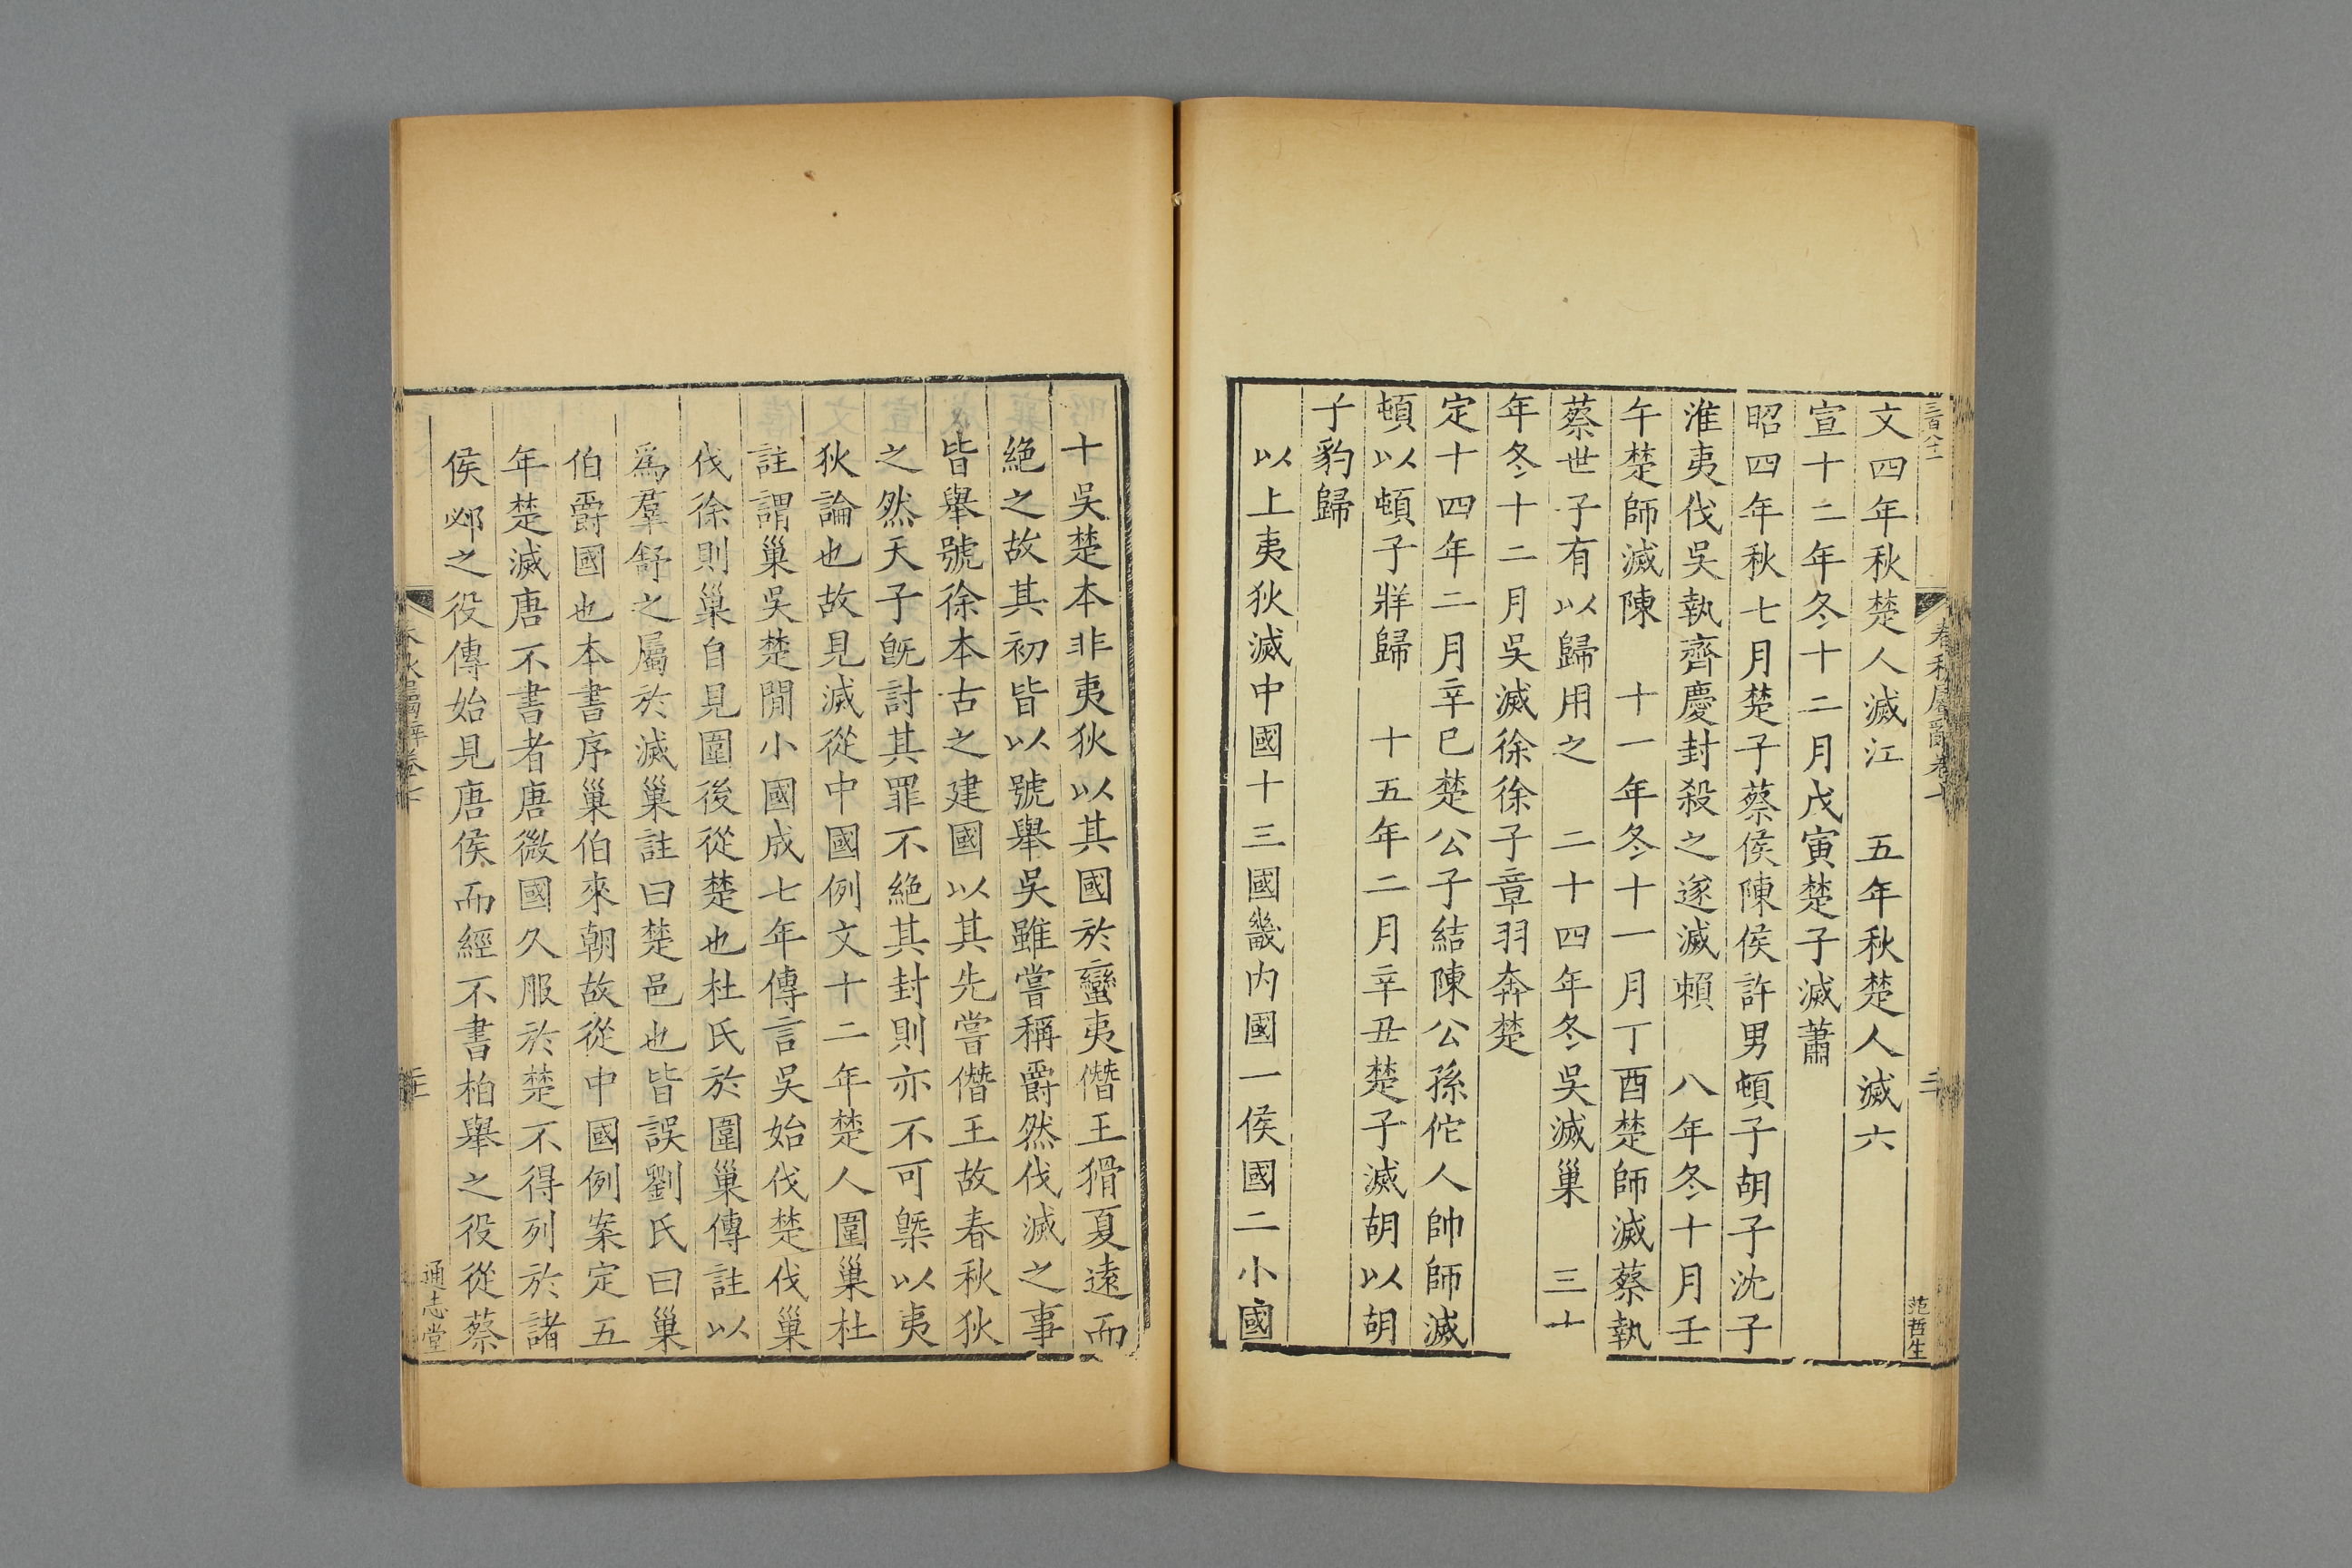 三百八十一
春秋屬辭卷十
二
范哲生
文四年秋楚人滅江　五年秋楚人滅六
宣十二年冬十二月戊寅楚子滅蕭
昭四年秋七月楚子蔡侯陳侯許男頓子胡子沈子
淮夷伐吳執齊慶封殺之遂滅賴　八年冬十月壬
午楚師滅陳　十一年冬十一月丁酉楚師滅蔡執
蔡世子有以歸用之　二十四年冬吳滅巢　三十
年冬十二月吳滅徐徐子章羽奔楚
定十四年二月辛巳楚公子結陳公孫佗人帥師滅
頓以頓子牂歸　十五年二月辛丑楚子滅胡以胡
子豹歸
以上夷狄滅中國十三國畿內國一侯國二小國
十吳楚本非夷狄以其國於蠻夷僭王猾夏遠而
絕之故其初皆以號舉吳雖嘗稱爵然伐滅之事
皆舉號徐本古之建國以其先嘗僭王故春秋狄
之然天子旣討其罪不絕其封則亦不可槩以夷
狄論也故見滅從中國例文十二年楚人圍巢杜
註謂巢吳楚閒小國成七年傳言吳始伐楚伐巢
伐徐則巢自見圍後從楚也杜氏於圍巢傳註以
爲羣舒之屬於滅巢註曰楚邑也皆誤劉氏曰巢
伯爵國也本書序巢伯來朝故從中國例案定五
年楚滅唐不書者唐微國久服於楚不得列於諸
侯邲之役傳始見唐侯而經不書柏舉之役從蔡
通志堂